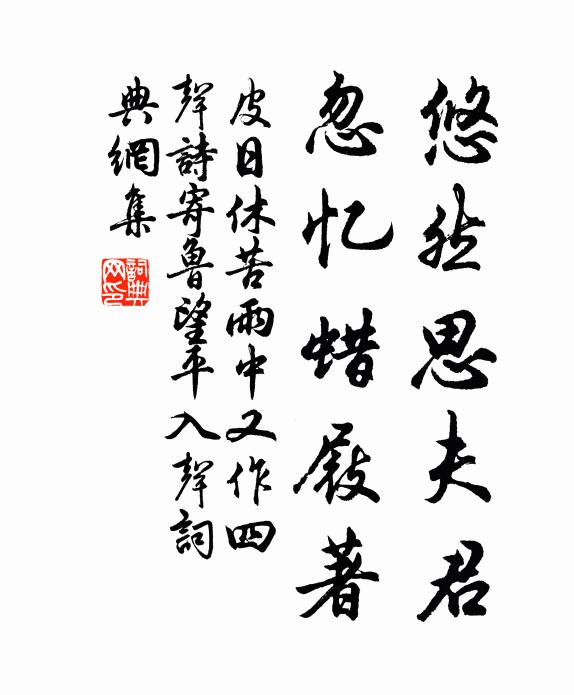 悠然思夫君
忽忆蜡屐著
皮日休苦雨中又作四
聲詩寄魯望平入聲詞
典網集
詞典
网印